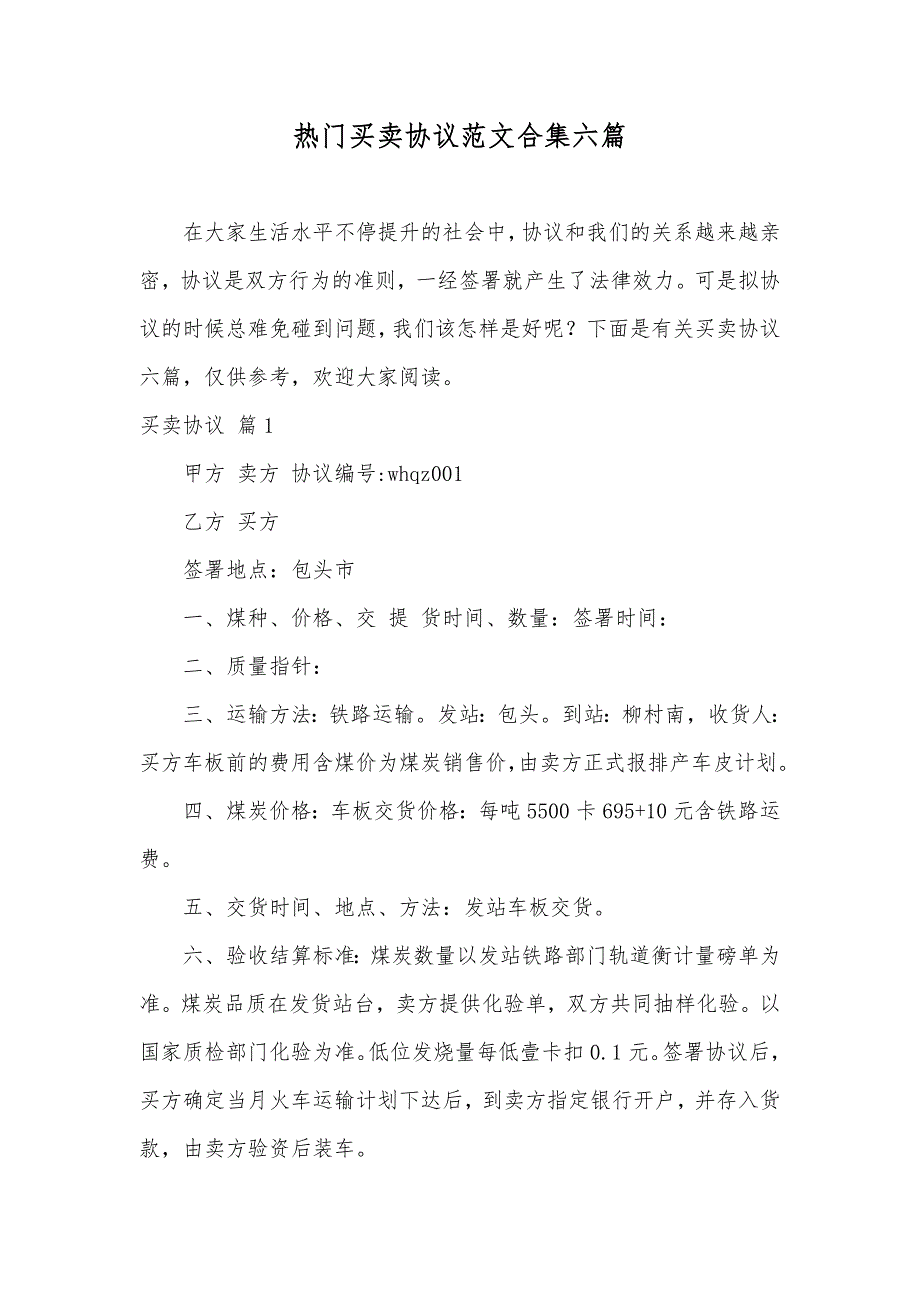 热门买卖协议范文合集六篇
在大家生活水平不停提升的社会中，协议和我们的关系越来越亲
密，协议是双方行为的准则，一经签署就产生了法律效力。可是拟协
议的时候总难免碰到问题，我们该怎样是好呢？下面是有关买卖协议
六篇，仅供参考，欢迎大家阅读。
买卖协议 篇1
甲方 卖方 协议编号:whqz001
乙方 买方
签署地点：包头市
一、煤种、价格、交 提 货时间、数量：签署时间：
二、质量指针：
三、运输方法：铁路运输。发站：包头。到站：柳村南，收货人：
买方车板前的费用含煤价为煤炭销售价，由卖方正式报排产车皮计划。
四、煤炭价格：车板交货价格：每吨5500卡695+10元含铁路运
费。
五、交货时间、地点、方法：发站车板交货。
六、验收结算标准：煤炭数量以发站铁路部门轨道衡计量磅单为
准。煤炭品质在发货站台，卖方提供化验单，双方共同抽样化验。以
国家质检部门化验为准。低位发烧量每低壹卡扣0.1元。签署协议后，
买方确定当月火车运输计划下达后，到卖方指定银行开户，并存入货
款，由卖方验资后装车。